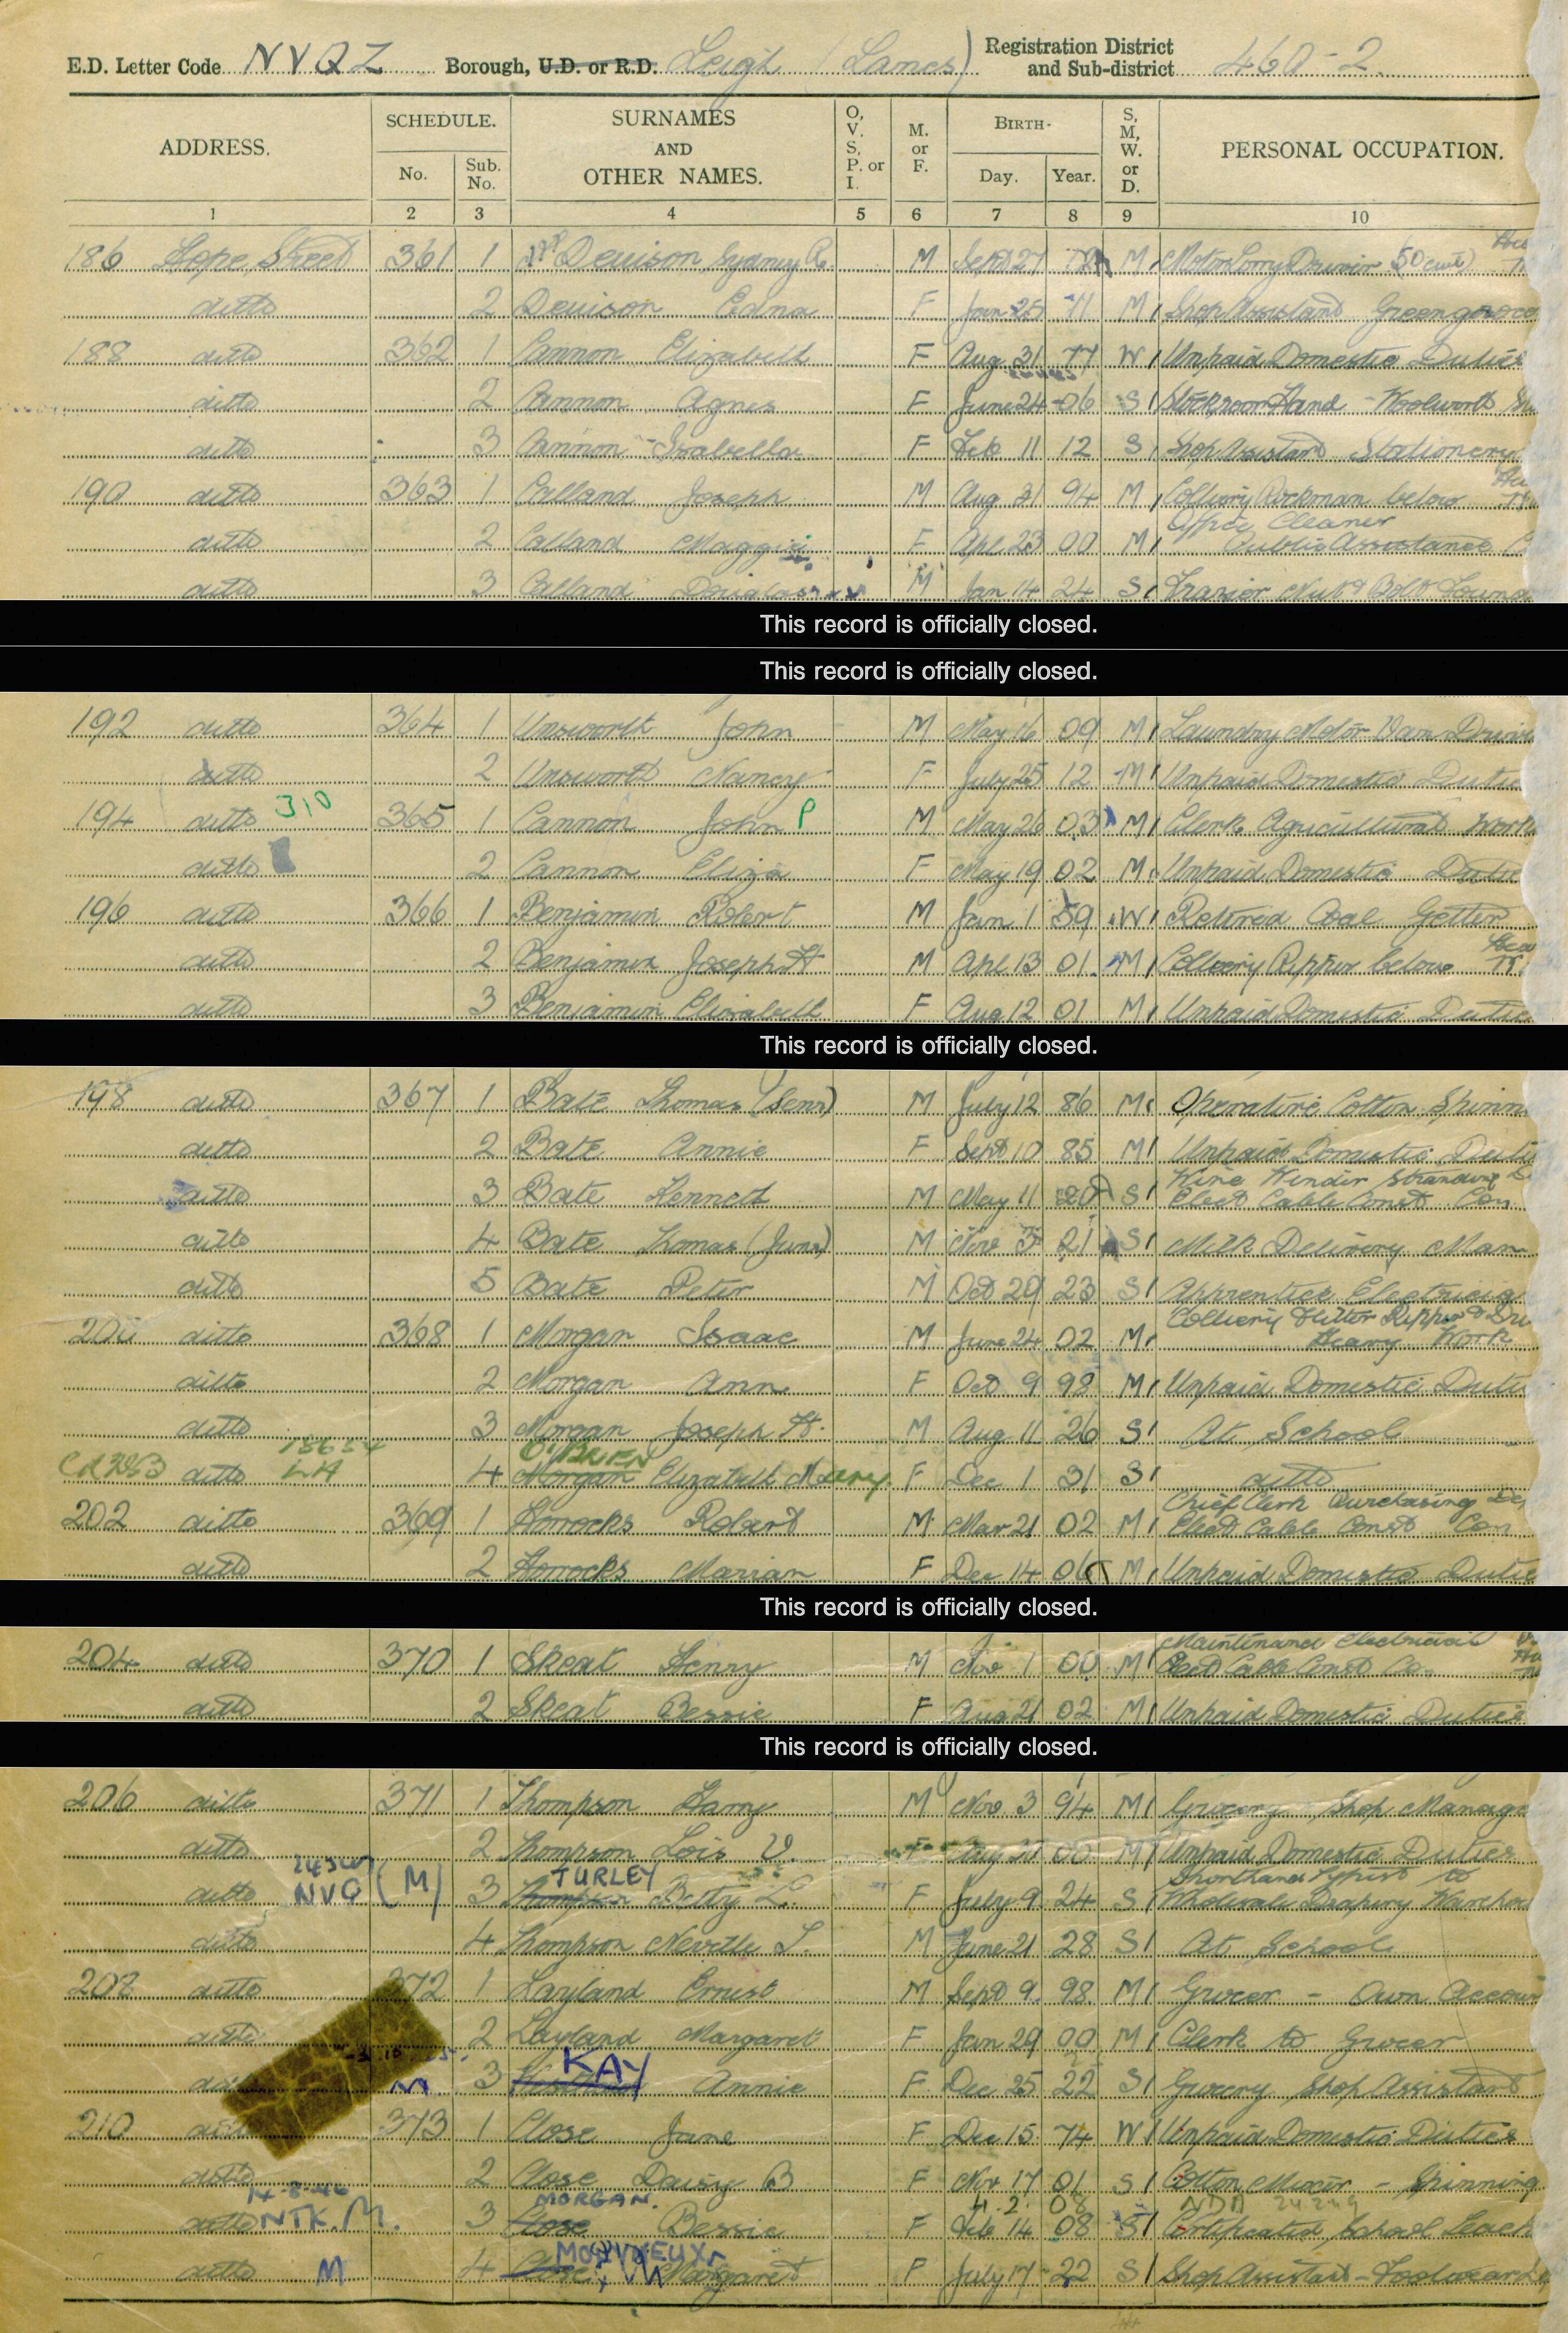 E.D. Letter Code NVQZ Borough, U.D. or R.D. Leigh (Lancs) Registration District and Sub-district 460-2
ADDRESS. SCHEDULE. No. Sub. No. SURNAMES AND OTHER NAMES. O, V. S, P. or I. M. or F. BIRTH- Day. Year. S, M, W. or D. PERSONAL OCCUPATION.
1 2 3 4 5 6 7 8 9 10
186 Hope Street 361 1 Denison Sydney R. M Sept 27 M Motor Lorry Driver 50 cwt)
ditto 2 Denison Edna F Jan 25 11 M Shop Assistant
188 ditto 362 1 Cannon Elizabeth F Aug 31 77 W Unpaid Domestic Duties
ditto 2 Cannon Agnes F June 24 06 S Stockroom Hand - Woolworth
ditto 3 Cannon Isabella F Feb 11 12 S Shop Assistant Stationery
190 ditto 363 1 Calland Joseph M Aug 31 94 M Colliery below
ditto 2 Calland Maggie F Apl 23 00 M Office Cleaner Public Assistance
ditto 3 Calland Douglas M Jan 14 24 S Nut & Bolt
This record is officially closed.
This record is officially closed.
192 ditto 364 1 Unsworth John M May 16 09 M Laundry Motor Van
ditto 2 Unsworth Nancy F July 25 12 M Unpaid Domestic Duties
194 ditto 310 365 1 Cannon John P M May 26 03 M Clerk Agricultural
ditto 2 Cannon Eliza F May 19 02 M Unpaid Domestic
196 ditto 366 1 Benjamin Robert M Jan 1 59 W Retired Coal Getter
ditto 2 Benjamin Joseph H M Apl 13 01 M Colliery Ripper below
ditto 3 Benjamin Elizabeth F Aug 12 01 M Unpaid Domestic
This record is officially closed.
198 ditto 367 1 Bate Thomas (Senr) M July 12 86 M Operative Cotton
ditto 2 Bate Annie F Sept 10 85 M Unpaid Domestic
ditto 3 Bate Kenneth M May 11 20 S Wire Winder Stranding Elect Cable Const Co.
ditto 4 Bate Thomas (Junr) M Nov 3 21 S Milk Delivery Man
ditto 5 Bate Peter M Oct 29 23 S Apprentice
200 ditto 368 1 Morgan Isaac M June 24 02 M Colliery Heavy Work
ditto 2 Morgan Ann F Oct 9 98 M Unpaid Domestic
ditto 3 Morgan Joseph H. M Aug 11 26 S At School
ditto 4 Morgan O'BRIEN Elizabeth Mary F Dec 1 31 S ditto
202 ditto 369 1 Horrocks Robert M Mar 21 02 M Chief Clerk Purchasing Elect Cable Const Con
ditto 2 Horrocks Marian F Dec 14 06 M Unpaid Domestic
This record is officially closed.
204 ditto 370 1 Skeat Henry M Nov 1 00 M Maintenance Elect Cable Const Co.
ditto 2 Skeat Bessie F Aug 21 02 M Unpaid Domestic Duties
This record is officially closed.
206 ditto 371 1 Thompson Harry M Nov 3 94 M Grocery Shop
ditto 2 Thompson Lois V. 00 M Unpaid Domestic Duties
ditto NVQ (M) 3 Thompson TURLEY Betty L. F July 9 24 S Shorthand Typist to Wholesale Drapery
ditto 4 Thompson Neville L. M June 21 28 S At School
208 ditto 372 1 Layland Ernest M Sept 9 98 M Grocer - Own
ditto 2 Layland Margaret F Jan 29 00 M Clerk to Grocer
3 KAY Annie F Dec 25 22 S Grocery Shop Assistant
210 373 1 Close Jane F Dec 15 74 W Unpaid Domestic Duties
ditto 2 Close Daisy B F Nov 17 01 S Cotton - Spinning
ditto NTK. M. 3 Close MORGAN. Bessie F Feb 14 08 4.2.08 S Certificated School
ditto M 4 Close Margaret F July 17 22 S Shop Assistant -